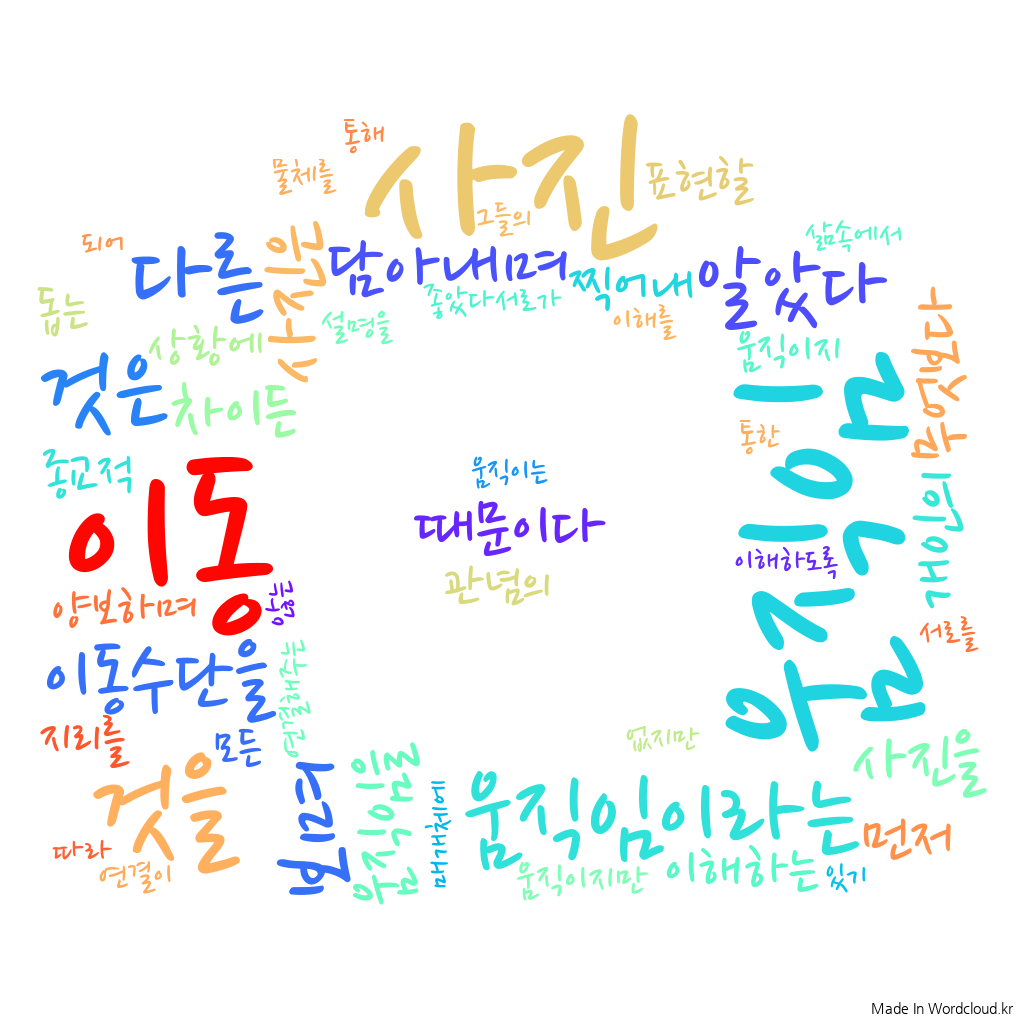 통해
사진
물체를
표현할
그들의
되어
다른
사진은
담아내며
찍어내
알았다
삶속에서
돕는
상황에
설명을
좋았다서로가
이해를
움직이지
것은
차이든
움직임
통한
종교적
이동
움직이는
때문이다
관념의
이해하도록
양보하며
않는
서로를
이동수단을
연결해주는
지리를
모든
없지만
사진을
것을
보며
움직임을
매개체에
움직임이라는
먼저
따라
연결이
움직이지만
이해하는
있기
Made In Wordcloud.kr